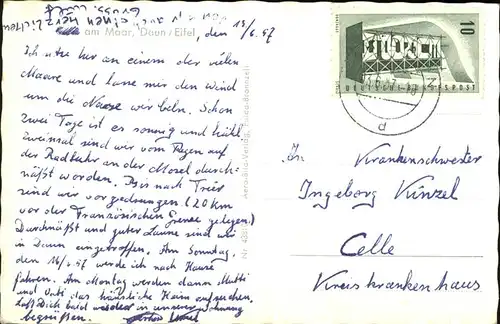 einen herzlichen
am Maar, Daun/Eifel, den 13/6.57
Ich sitze hier an einem der vielen
Maare und lasse mir den Wind
um die Nase wirbeln. Schon
zwei Tage ist es sonnig und kühl
zweimal sind wir vom Regen auf
der Radtour an der Mosel durch-
näßt worden. Bis nach Trier
sind wir vorgedrungen (20 km
vor der Französischen Grenze gelegen)
Durchnäßt und guter Laune sind wir
in Daun eingetroffen. Am Sonntag,
den 16/6.57 werde ich nach Hause
fahren. Am Montag werden dann Mutti
und Vati das häusliche Heim aufsuchen.
bald wieder in unserer Wohnung
begrüßen.
Nr.
10
DEUTSCHE BUNDESPOST
d
An
Krankenschwester
Ingeborg Künzel
Celle
Kreiskrankenhaus